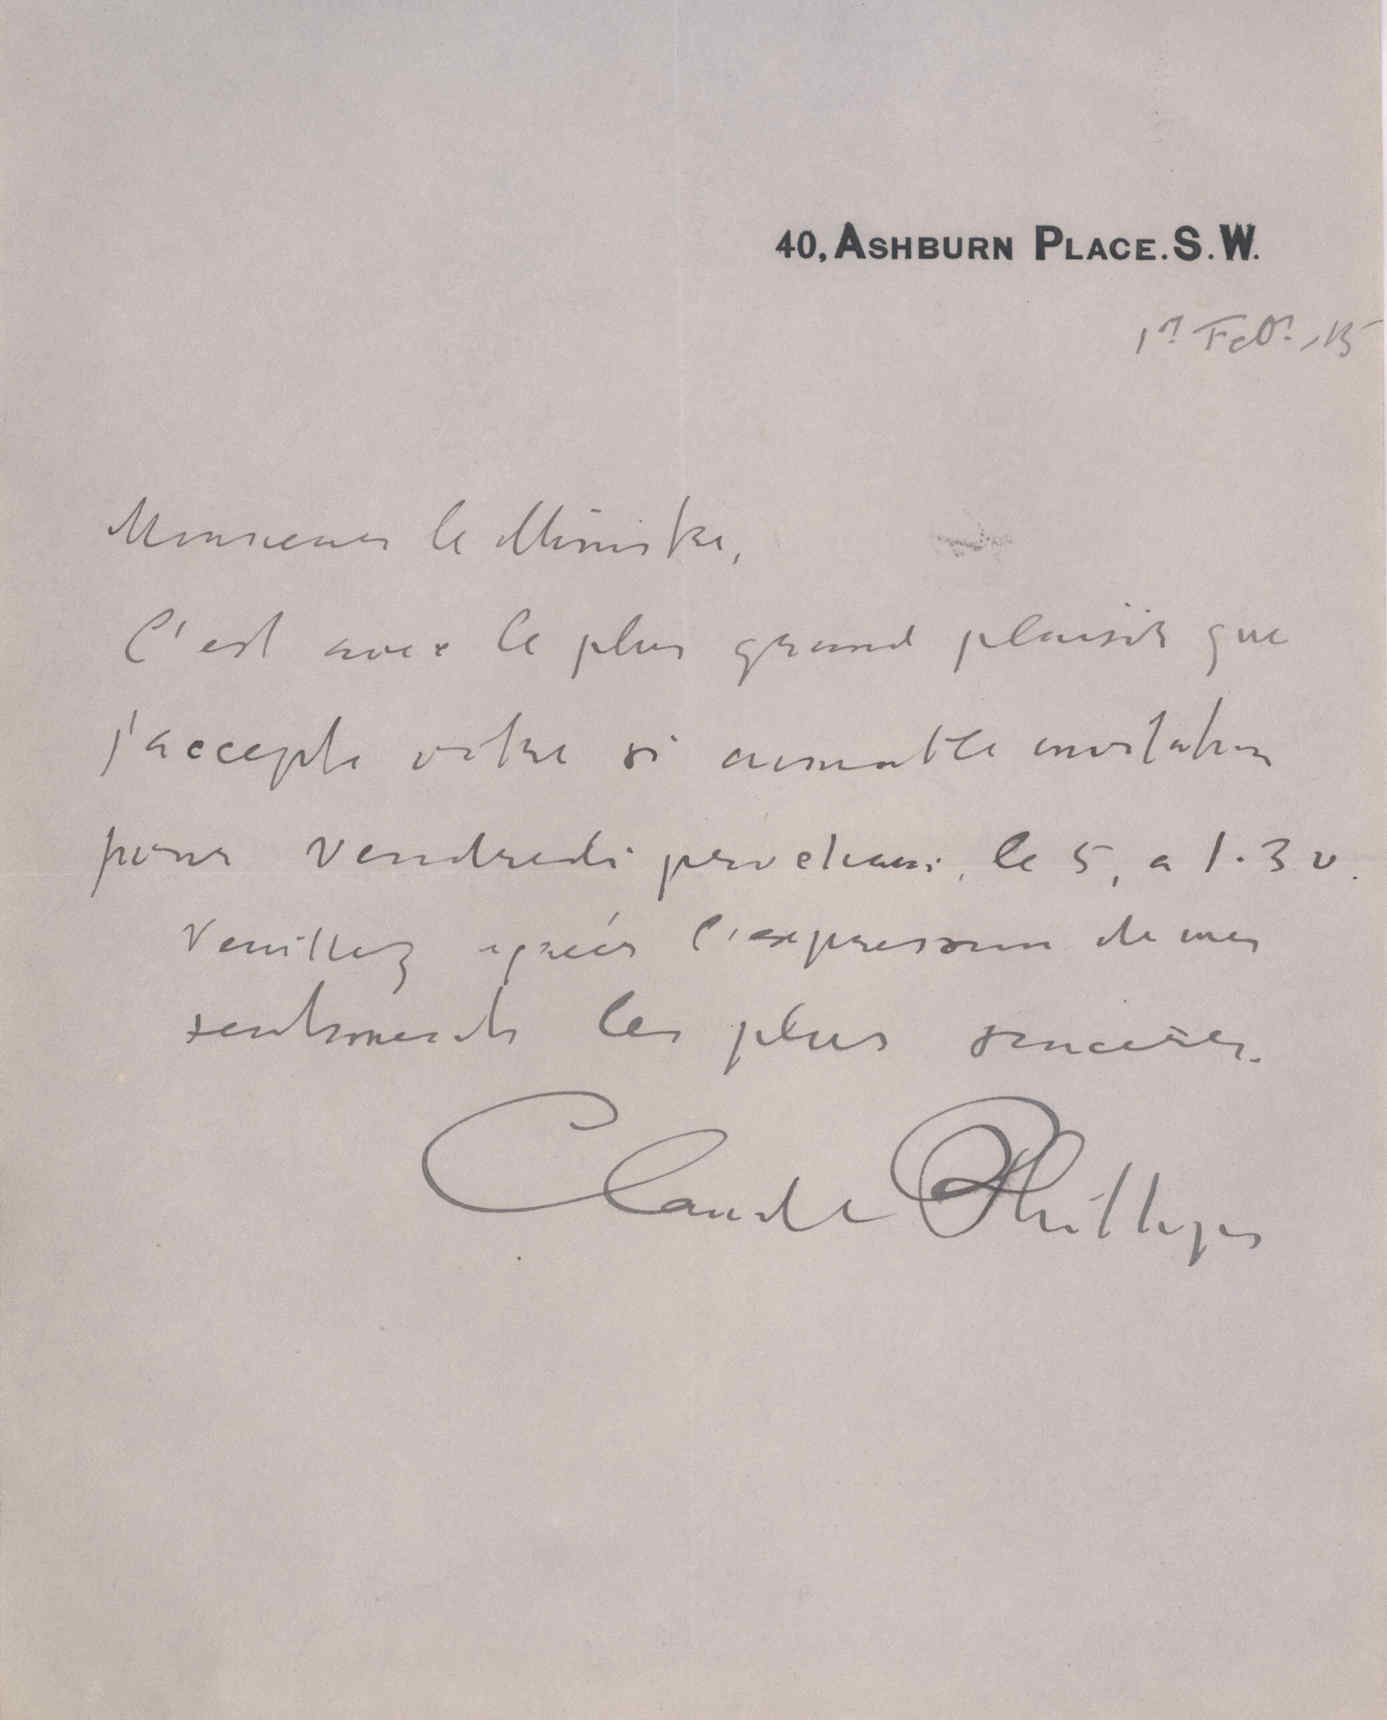 40, ASHBURN PLACE. S. W.
1er Febr. 15
Monsieur le Ministre,
C'est avec le plus grand plaisir que
j'accepte votre si aimable invitation
pour Vendredi prochain, le 5, a 1.30.
Veuillez agréer l'expression de mes
sentiments les plus sincères.
Claude Phillips